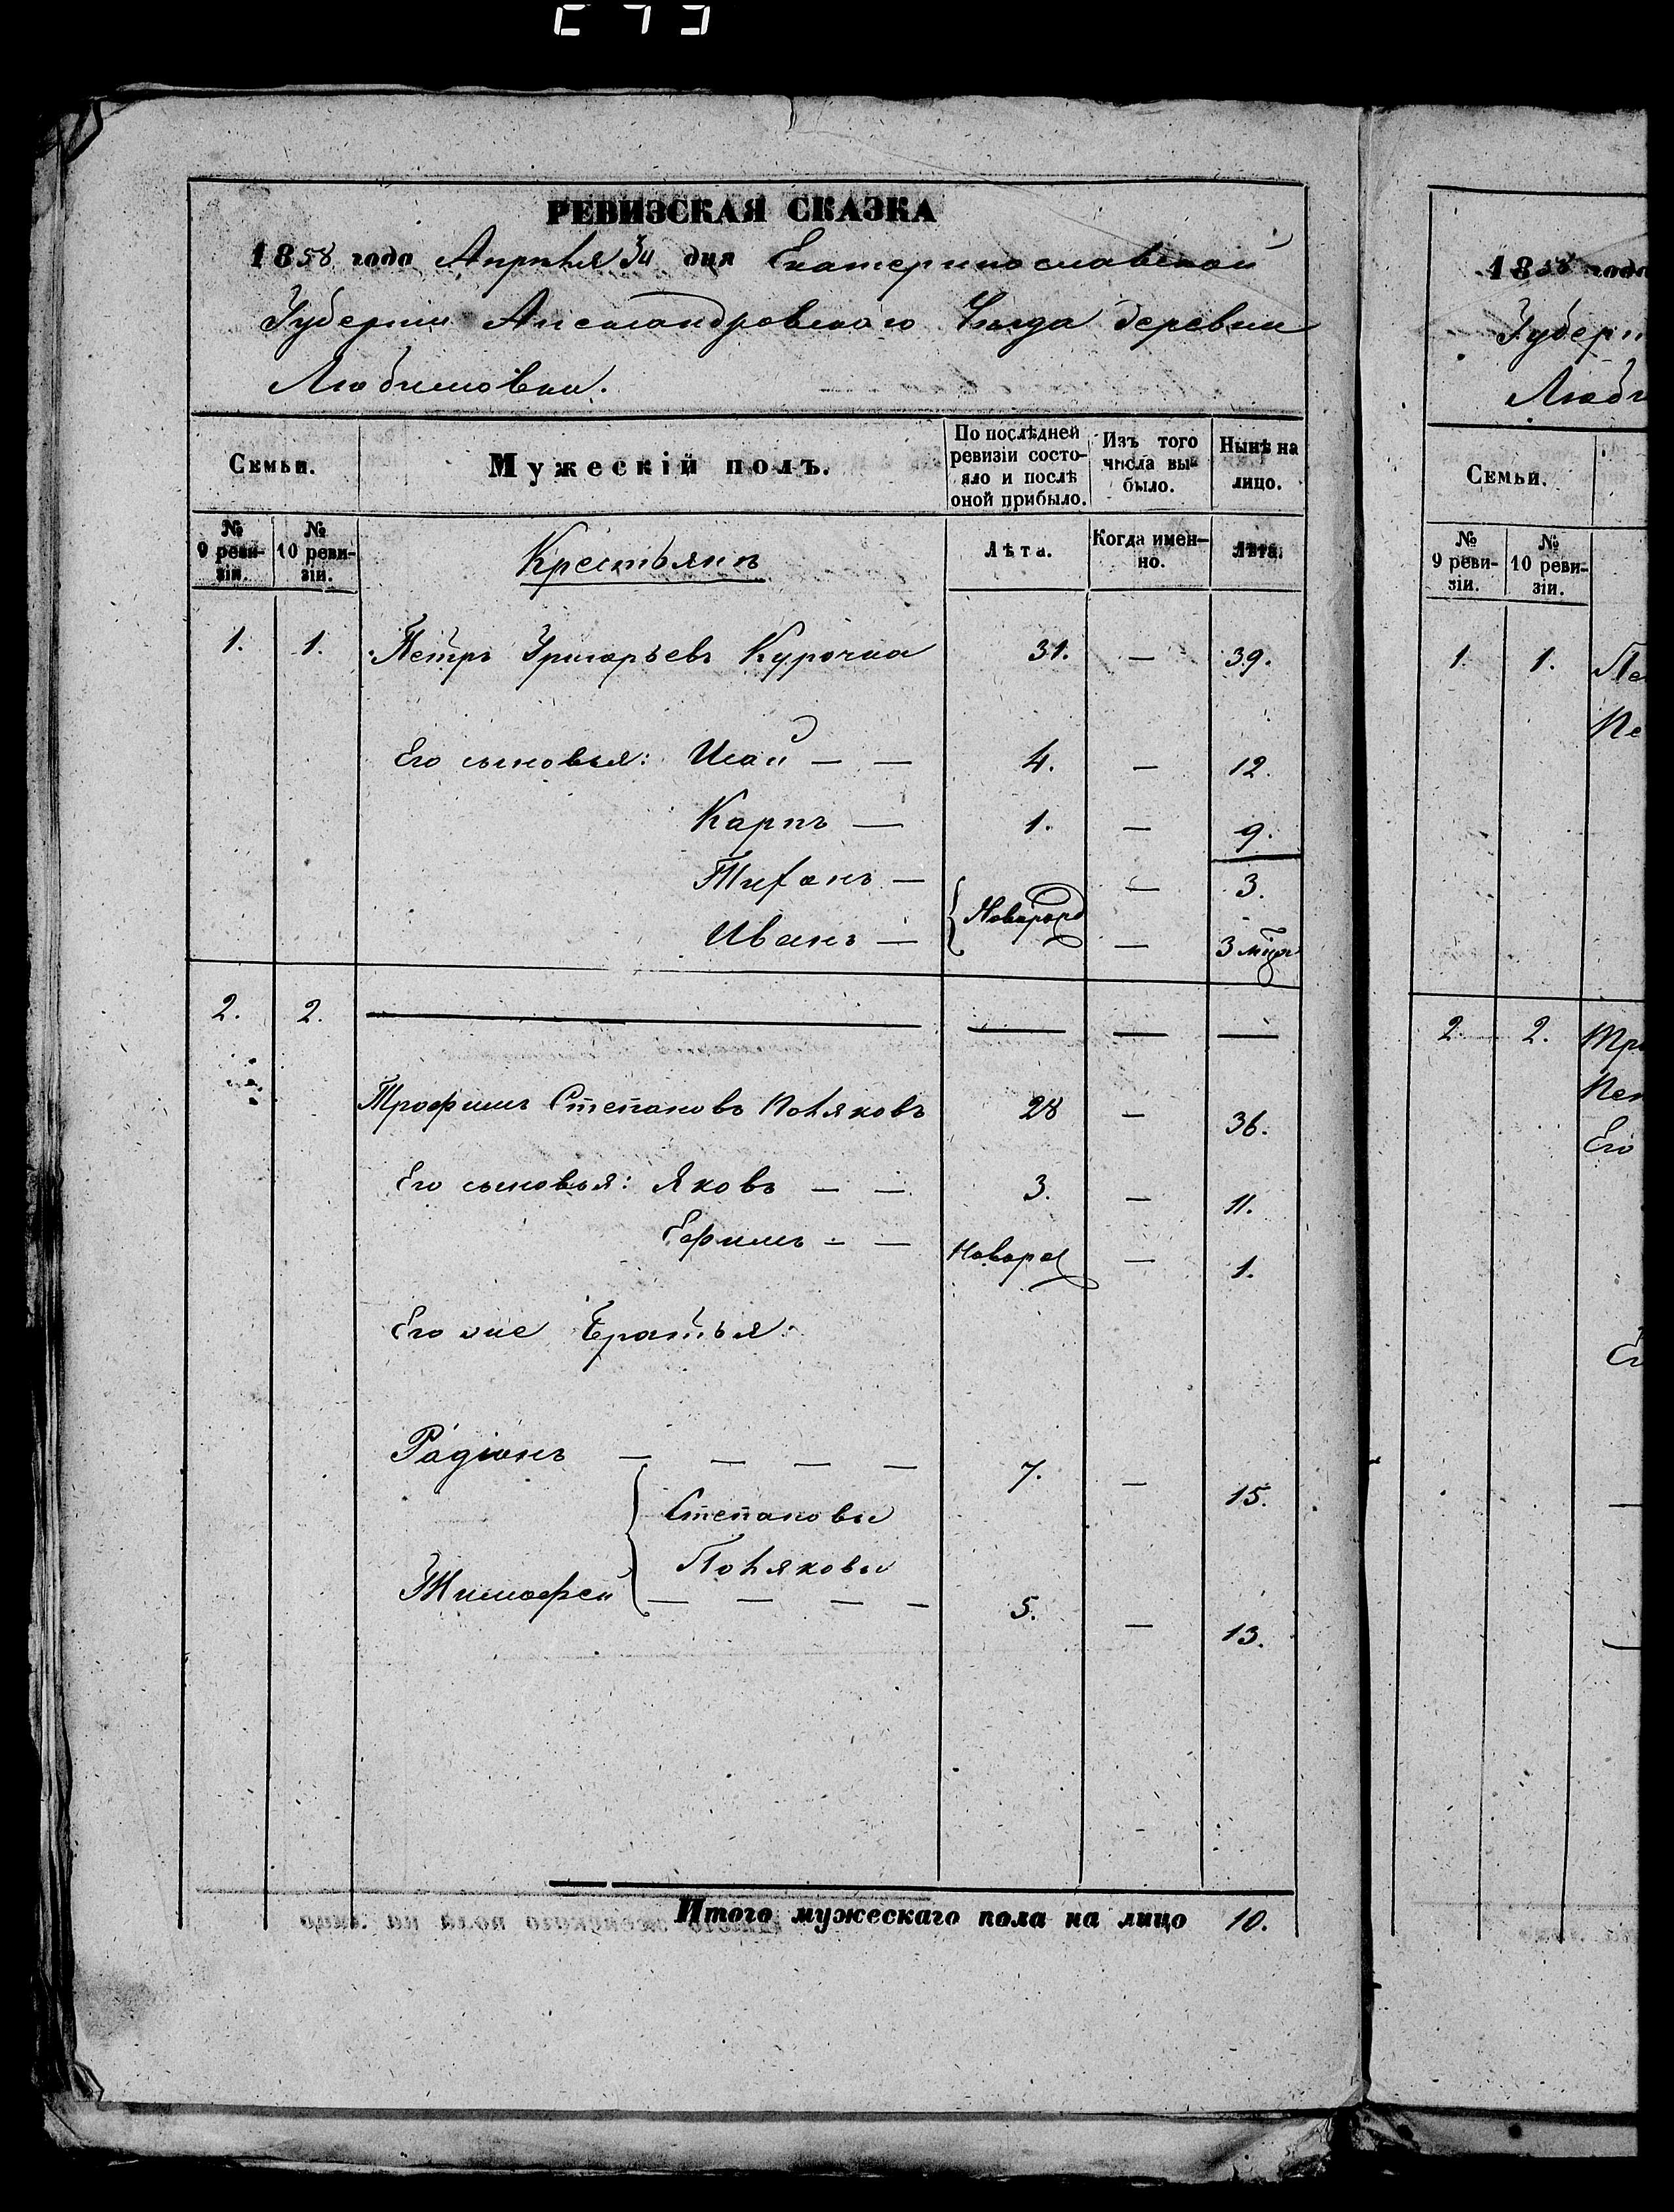 РЕВИЗСКАЯ СКАЗКА
1858 года Апрѣля 3го дня Екатеринославской
Губерніи Александровского Уѣзда деревни
Любимовки.
Семьи.
Мужескій полъ.
По послѣдней ревизіи состояло и послѣ оной прибыло.
Изъ того числа выбыло.
Нынѣ на лицо.
№ 9 ревизіи.
№ 10 ревизіи.
Крестьянъ
Лѣта.
Когда именно.
Лѣта.
1. 1. Петръ Григорьевъ Курочка 31. — 39.
Его сыновья: Исай — — 4. — 12.
Карпъ — 1. — 9.
Тихонъ — — 3.
Новорожд
Иванъ — — 3 мѣся
2. 2. — — — —
Трофимъ Степановъ Поляковъ 28 — 36.
Его сыновья: Яковъ — — 3. — 11.
Ефимъ — — Новорож — 1.
Его же братья:
Радіонъ — — — — 7. — 15.
Степановы
Поляковы
Тимофей — — — — 5. — 13.
Итого мужескаго пола на лицо 10.
1858 года
Губерн
Люби
Семьи.
№ 9 ревизіи.
№ 10 ревизіи.
1. 1. Пе
Пе
2. 2. Тро
Пет
Его
Ег